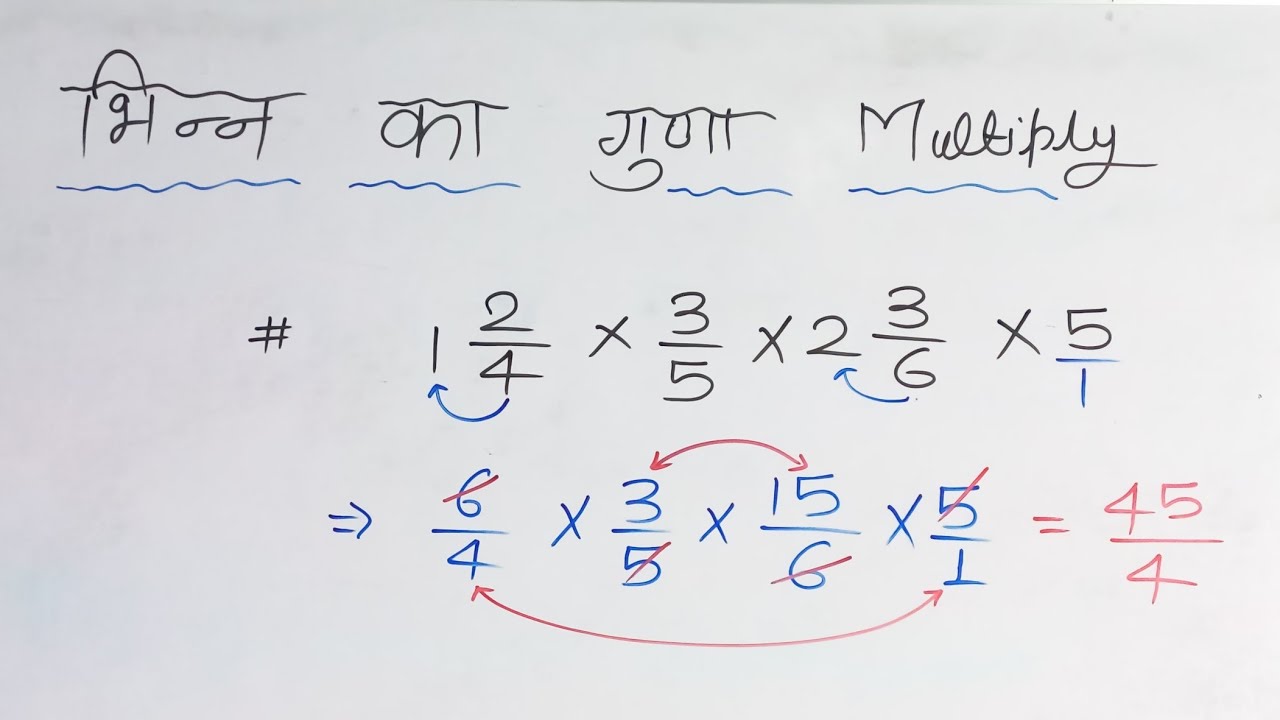 भिन्न का गुणा Multiply
# 1 2/4 × 3/5 × 2 3/6 × 5/1
⇒ 6/4 × 3/5 × 15/6 × 5/1 = 45/4